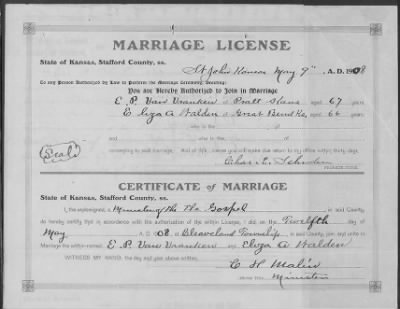 MARRIAGE LICENSE
State of Kansas, Stafford County, ss.
St John Kansas May 9" A. D. 1908
To any Person Authorized by Law to Perform the Marriage Ceremony, Greeting:
You are Hereby Authorized to Join in Marriage
E. P. Van Vranken of Pratt aged 67 years
Eliza A Walden of Great Bend Ks, aged 66 years
who is the of
and who is the of
(Seal) consenting to said marriage. And of this License you will make due return to my office within thirty days.
PROBATE JUDGE.
CERTIFICATE OF MARRIAGE
State of Kansas, Stafford County, ss.
I, the undersigned, a Minister of the Gospel in said County,
do hereby certify, that in accordance with the authorization of the within License, I did, on the Twelfth day of
May A. D. 1908, at Cleaveland Township in said County, join and unite in
Marriage the within named E. P. Van Vranken and Eliza A Walden
WITNESS MY HAND, the day and year above written.
C H Malin
Minister